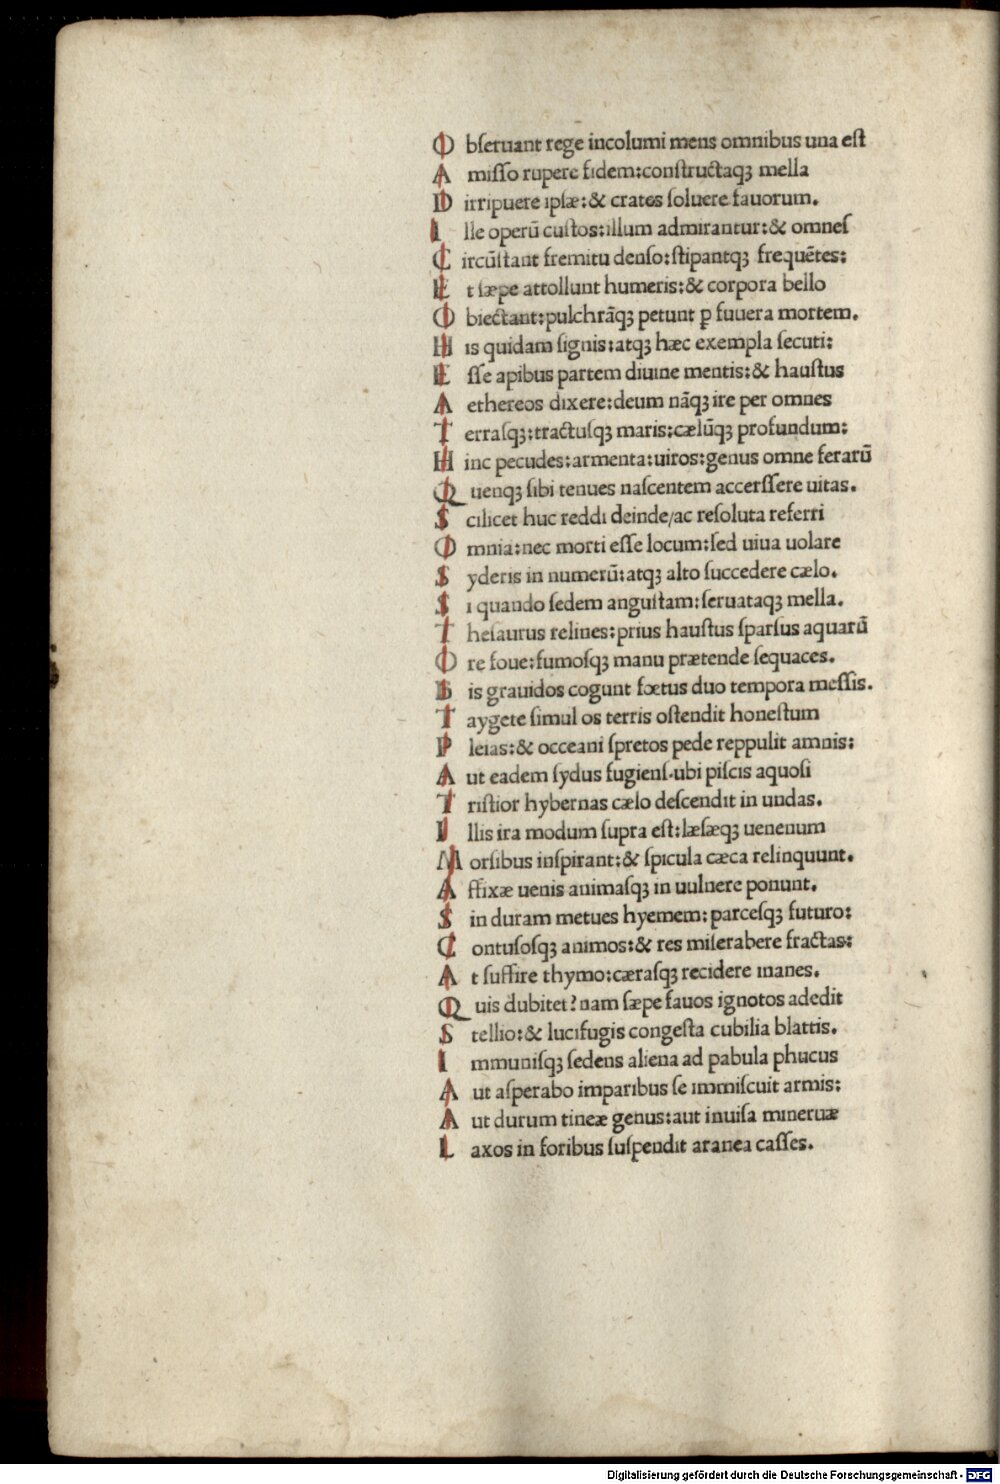 O bſeruant rege incolumi mens omnibus una eſt
A miſſo rupere fidem:conſtructaqꝫ mella
D irripuere ipſæ:& crates ſoluere fauorum.
I lle operū cuſtos:illum admirantur:& omneſ
C ircūſtant fremitu denſo:ſtipantqꝫ frequētes:
E t ſæpe attollunt humeris:& corpora bello
O biectant:pulchrāqꝫ petunt ꝑ fuuera mortem.
H is quidam ſignis:atqꝫ hæc exempla ſecuti:
E ſſe apibus partem diuine mentis:& hauſtus
A ethereos dixere:deum nāqꝫ ire per omnes
T erraſqꝫ:tractuſqꝫ maris:cælūqꝫ profundum:
H inc pecudes:armenta:uiros:genus omne ferarū
Q uenqꝫ ſibi tenues naſcentem accerſſere uitas.
S cilicet huc reddi deinde/ac reſoluta referri
O mnia:nec morti eſſe locum:ſed uiua uolare
S yderis in numerū:atqꝫ alto ſuccedere cælo.
S i quando ſedem anguſtam:ſeruataqꝫ mella.
T heſaurus relines:prius hauſtus ſparſus aquarū
O re foue:fumoſqꝫ manu prætende ſequaces.
B is grauidos cogunt fœtus duo tempora meſſis.
T aygete ſimul os terris oſtendit honeſtum
P leias:& occeani ſpretos pede reppulit amnis:
A ut eadem ſydus fugienſ.ubi piſcis aquoſi
T riſtior hybernas cælo deſcendit in undas.
I llis ira modum ſupra eſt:læſæqꝫ uenenum
M orſibus inſpirant:& ſpicula cæca relinquunt.
A ffixæ uenis animaſqꝫ in uulnere ponunt.
S in duram metues hyemem:parceſqꝫ futuro:
C ontuſoſqꝫ animos:& res miſerabere fractas:
A t ſuffire thymo:cæraſqꝫ recidere inanes.
Q uis dubitet?nam ſæpe fauos ignotos adedit
S tellio:& lucifugis congeſta cubilia blattis.
I mmuniſqꝫ ſedens aliena ad pabula phucus
A ut aſperabo imparibus ſe immiſcuit armis:
A ut durum tineæ genus:aut inuiſa mineruæ
L axos in foribus ſuſpendit aranea caſſes.
Digitalisierung gefördert durch die Deutsche Forschungsgemeinschaft - DFG